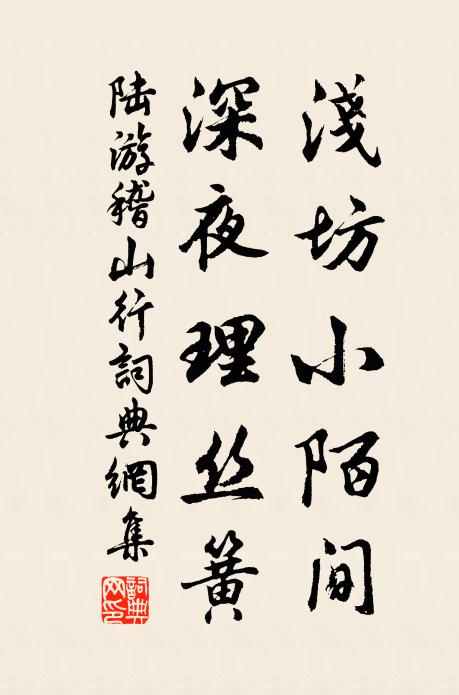 淺坊小陌间
深夜理丝簧
陆游稽山行詞典網集
詞典网印